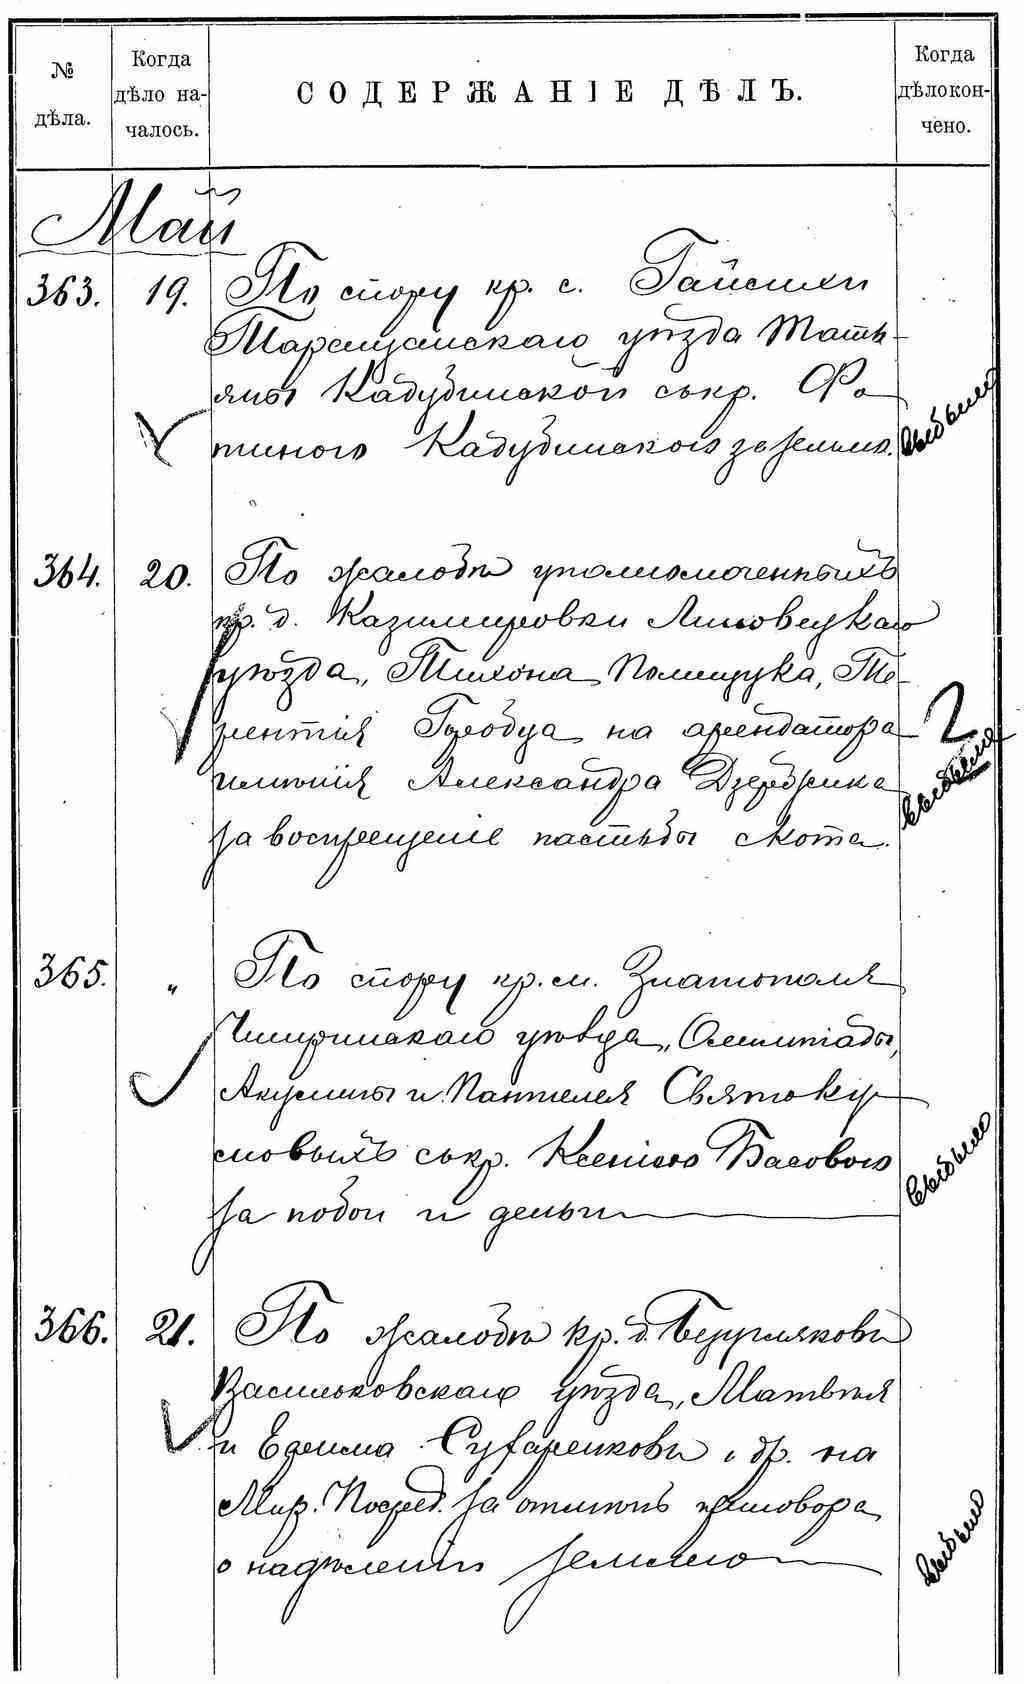 № дѣла.
Когда дѣло на- чалось.
СОДЕРЖАНІЕ ДѢЛЪ.
Когда дѣло кон- чено.
Май
363. 19. По спору кр. с. Гайсихи
Таращанскаго уѣзда Тать-
яны Кадубинской съ кр. Фо-
тиного Кадубинскою за землю.
выбыло
364. 20. По жалобѣ уполномоченныхъ
кр. д. Казимировки Липовецкаго
уѣзда, Тихона Полищука, Те-
рентія на арендатора
имѣнія Александра
за воспрещеніе пастьбы скота.
2
выбыло
365. „ По спору кр. м. Златополя
Чигиринскаго уѣзда, Олимпіады,
Акулины и Пантелея Святоку-
мовыхъ съ кр. Ксеніею Басовою
за побои и деньги
выбыло
366. 21. По жалобѣ кр. д.
Васильковскаго уѣзда, Матвѣя
и и др. на
Мир. Посред. за отмѣнъ приговора
о надѣленіи землею
выбыло